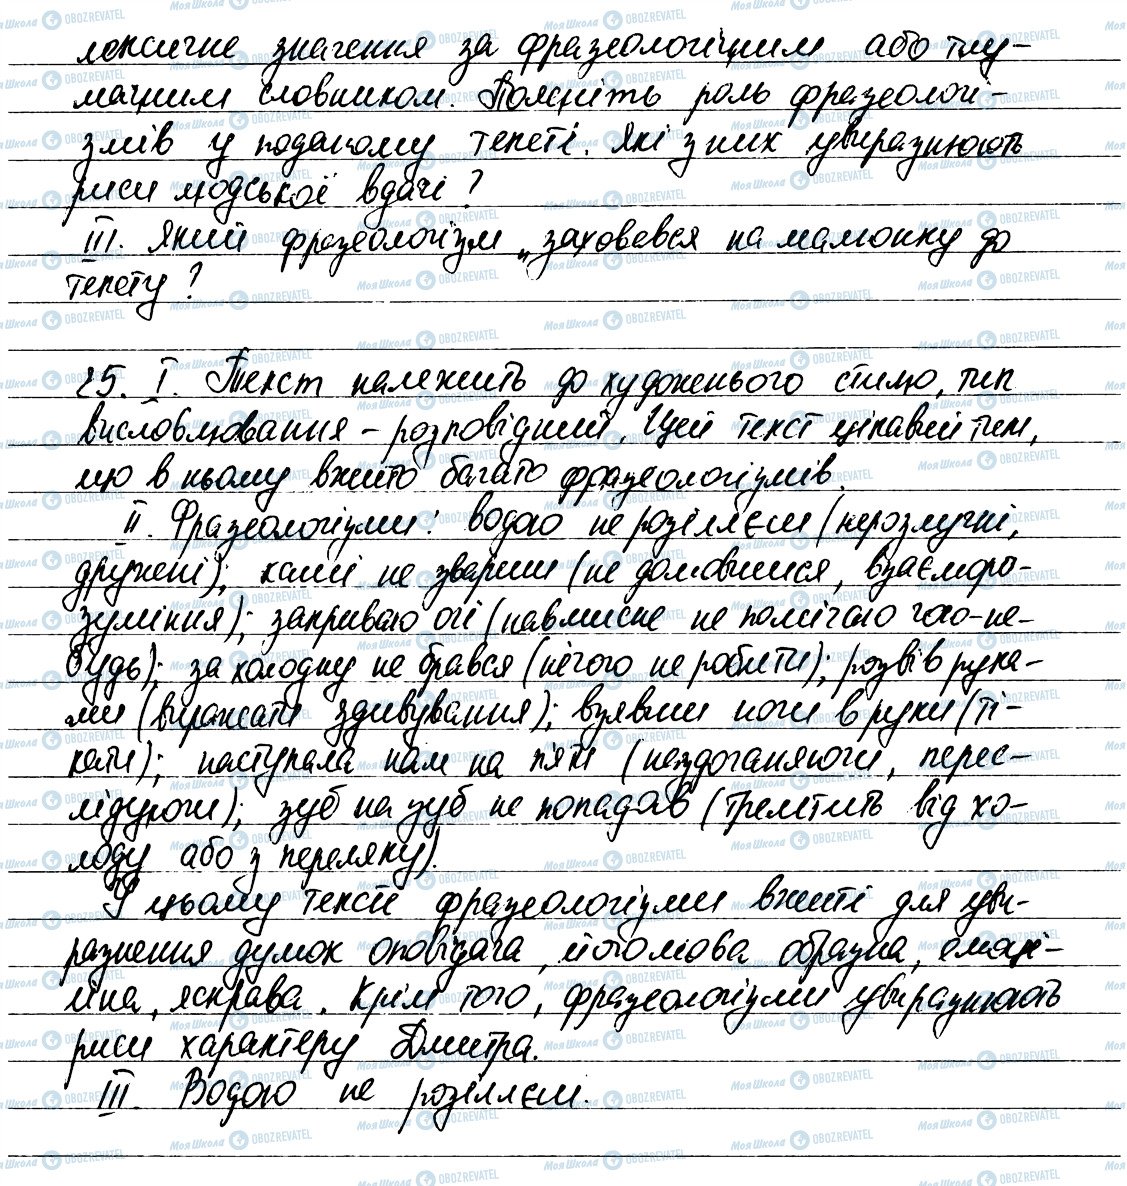 лексичне значення за фразеологічним або тлу-
мачним словником. Поясніть роль фразеологі-
змів у поданому тексті. Які з них увиразнюють
риси людської вдачі?
III. Який фразеологізм „заховався на малюнку до
тексту?
25. I. Текст належить до художнього стилю, тип
висловлювання – розповідний. Цей текст цікавий тим,
що в ньому вжито багато фразеологізмів.
II. Фразеологізми: водою не розіллєш (нерозлучні,
дружні); каші не звариш (не домовишся, взаєморо-
зуміння); закриваю очі (навмисне не помічаю чого-не-
будь); за холодну не брався (нічого не робити); розвів рука-
ми (виражати здивування); взявши ноги в руки (ті-
кати); наступала нам на п'яти (наздоганяючи, перес-
лідуючи); зуб на зуб не попадав (тремтить від хо-
лоду або з переляку).
У цьому тексті фразеологізми вжиті для уви-
разнення думок оповідача, його мова образна, емоці-
йна, яскрава. Крім того, фразеологізми увиразнюють
риси характеру Дмитра.
III. Водою не розіллєш.